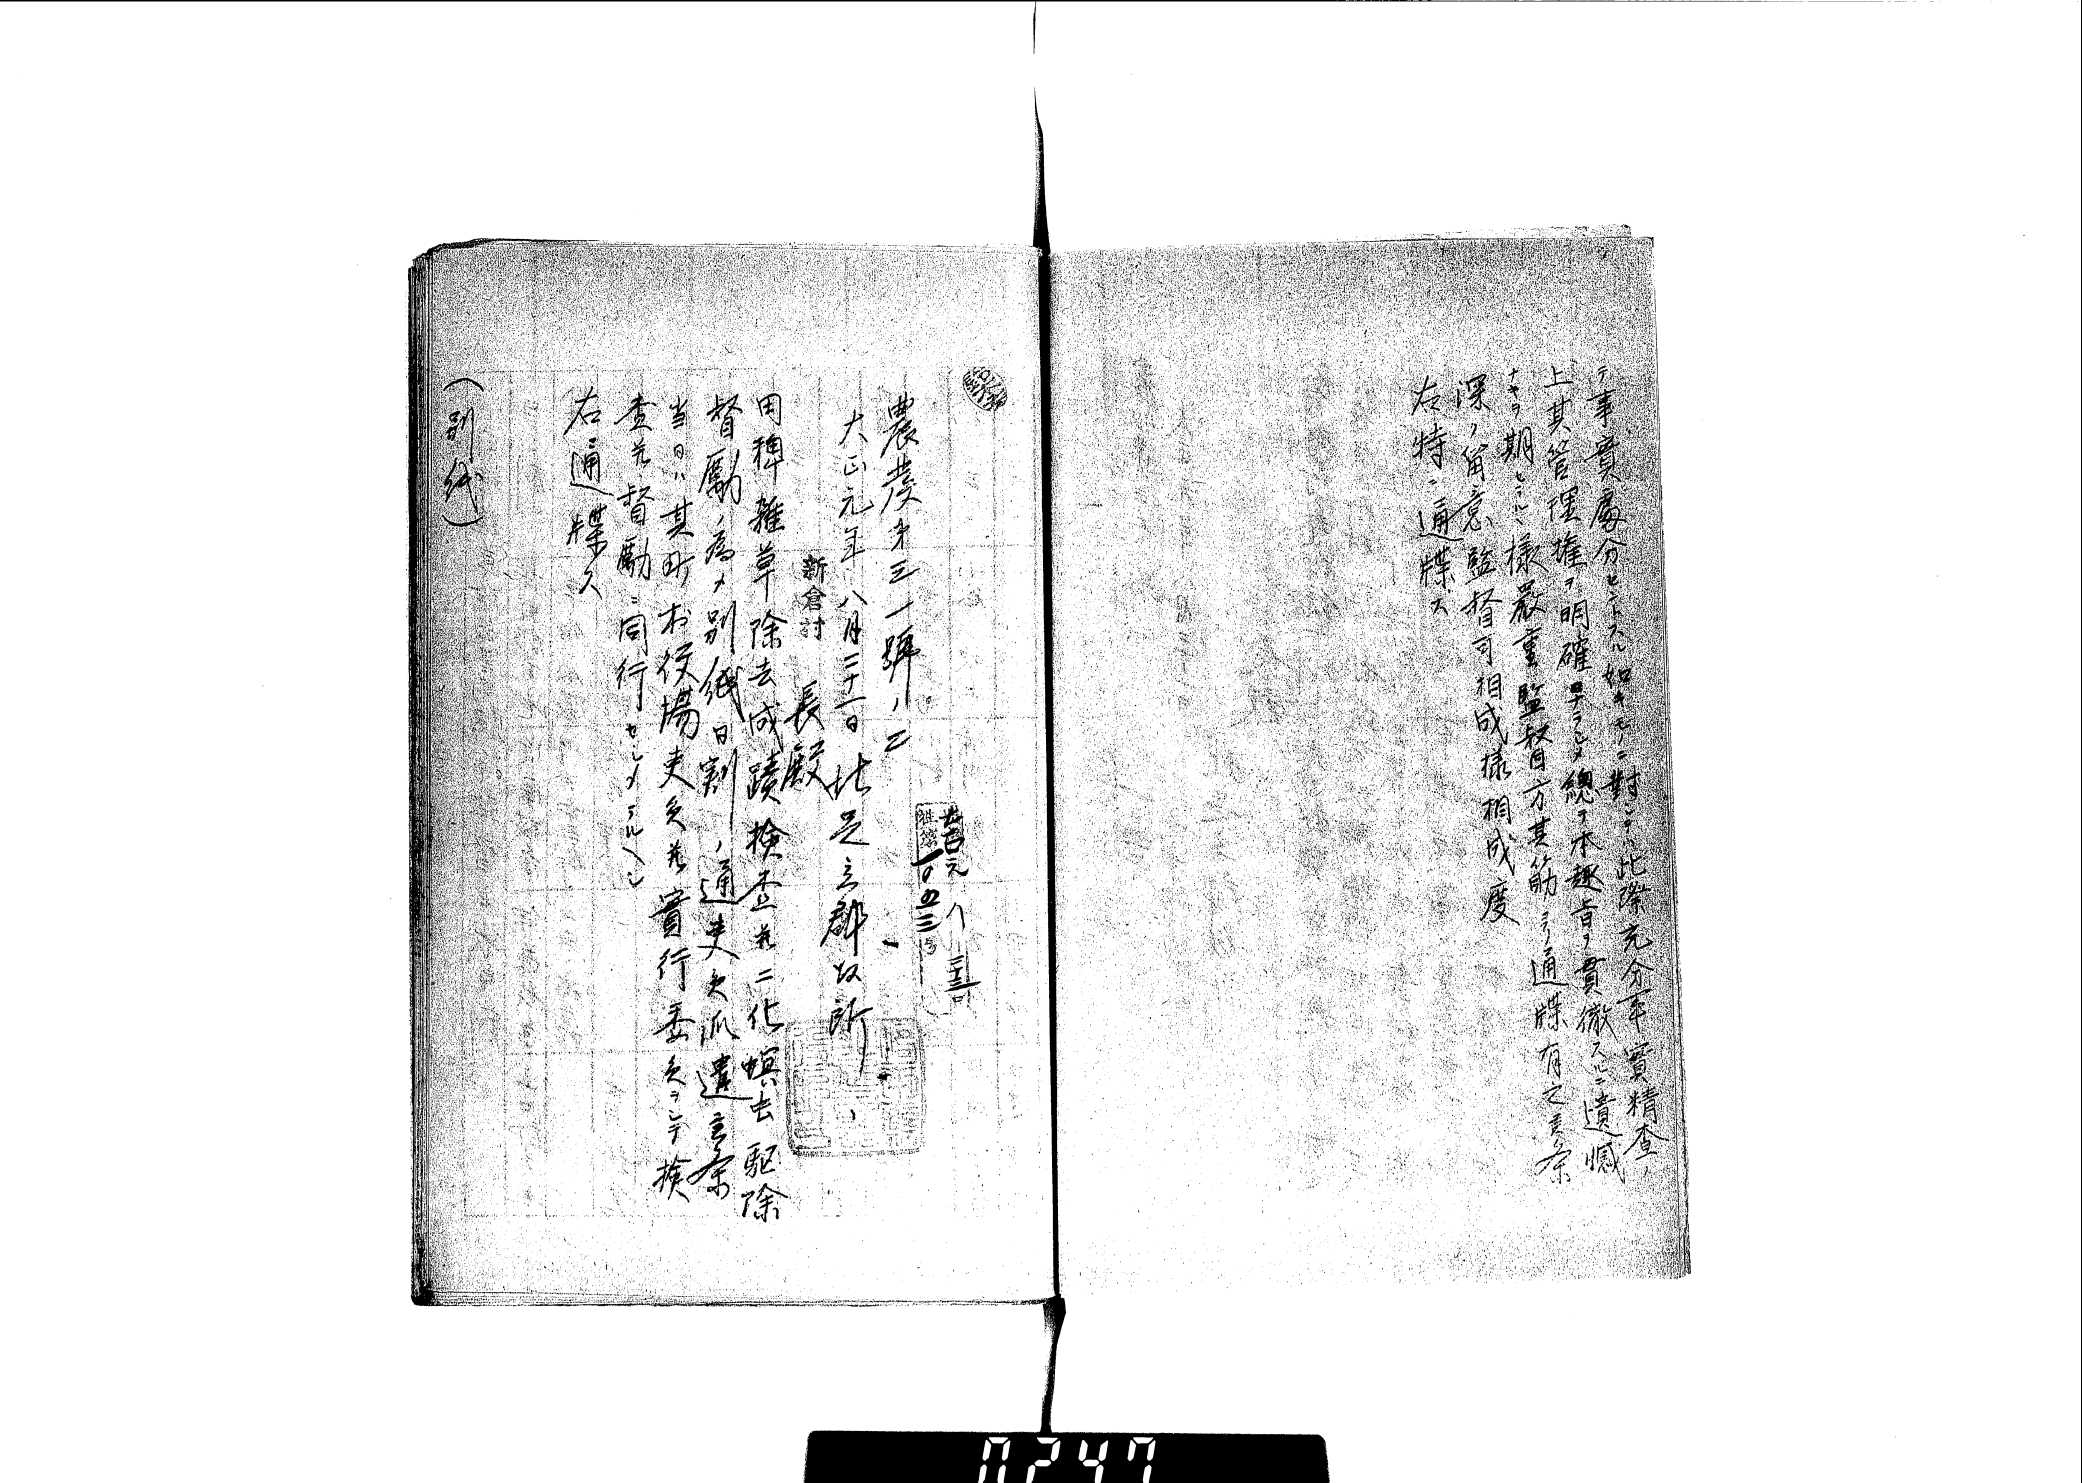 テ事實處分セントスル如キモノニ對シテハ此際充分事實精査ノ
上其管理權ヲ明確ナラシメ總テ本趣旨ヲ貫徹スルニ遺憾
ナキヲ期セラルヽ樣嚴重監督方其筋ヨリ通牒有之候条
深ク留意監督可相成樣相成度
右特ニ通牒ス
農発第三一號ノ二
大正元年八月三十一日 北足立郡役所
新倉村長殿
田稗雜草除去成蹟検査並二化螟虫駆除
督勵ノ為メ別紙日割ノ通吏員派遣候条
当日ハ其町村役場吏員並實行委員ヲシテ検
査並督勵ニ同行セシメラルヘシ
右通牒ス
(別紙)
0247